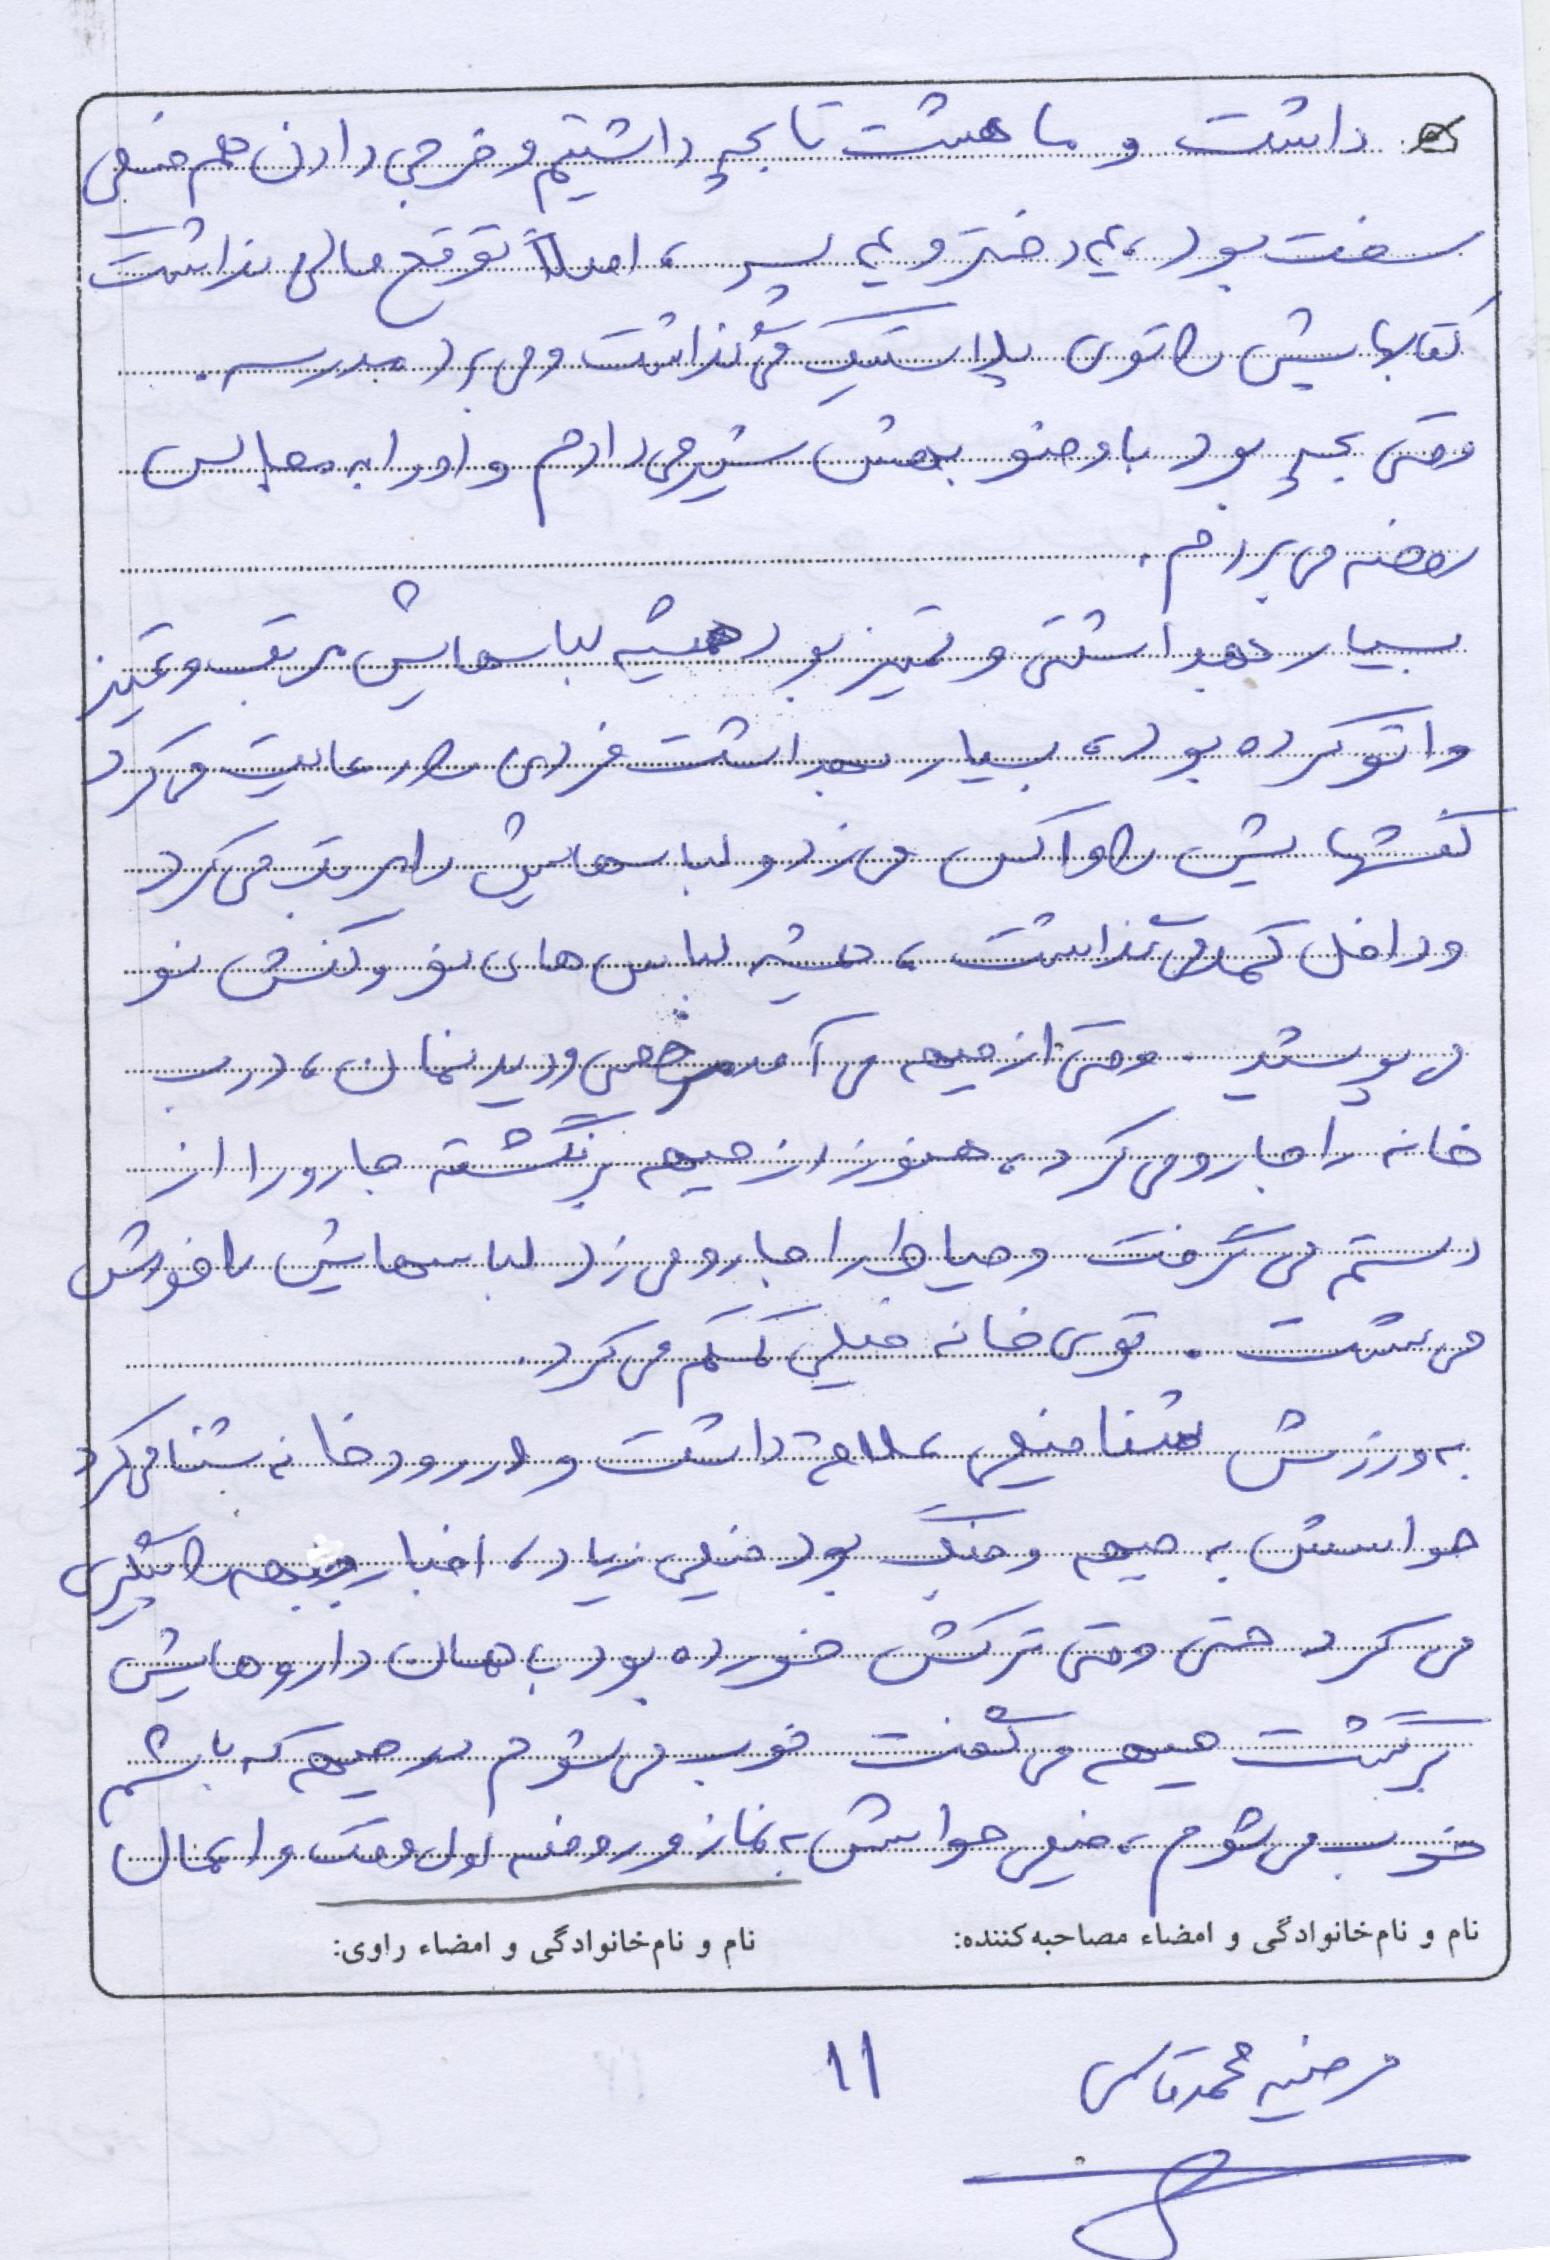 داشت و ما هشت تا بچه داشتیم و خرجی دادن هم خیلی
سخت بود، یه دختر و یه پسر، اصلاً توقع مالی نداشت
کتابهایش را توی پلاستیک می گذاشت و می برد مدرسه.
وقتی بچه بود با وضو بهش شیر می دادم و او را به مجالس
روضه می بردم.
بسیار بهداشتی و تمیز بود همیشه لباسهایش مرتب و تمیز
و اتو کرده بود، بسیار بهداشت فردی را رعایت می کرد
کفشهایش را واکس می زد و لباسهایش را مرتب می کرد
و داخل کمد می گذاشت، همیشه لباس های نو و کفش نو
می پوشید. وقتی از جبهه می آمد مرخصی و دیدنمان، درب
خانه را جارو می کرد، هنوز از جبهه برنگشته جارو را از
دستم می گرفت و حیاط را جارو می زد لباسهایش را خودش
می شست. توی خانه خیلی کمکم می کرد.
به ورزش شنا خیلی علاقه داشت و در رودخانه شنا می کرد
حواسش به جبهه و جنگ بود خیلی زیاد، اخبار جبهه را پیگیری
می کرد حتی وقتی ترکش خورده بود با همان داروهایش
برگشت جبهه می گفت خوب می شوم در جبهه که باشم
خوب می شوم، خیلی حواسش به نماز و روضه اول وقت و اعمال
نام و نام خانوادگی و امضاء مصاحبه کننده:
نام و نام خانوادگی و امضاء راوی:
مرضیه محمدقاسمی
۱۱